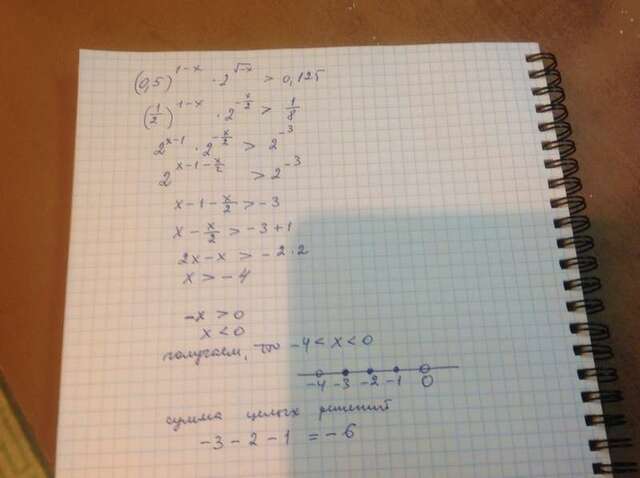 (0,5)^{1-x} · 2^{√-x} > 0,125
(1/2)^{1-x} · 2^{-x/2} > 1/8
2^{x-1} · 2^{-x/2} > 2^{-3}
2^{x-1-x/2} > 2^{-3}
x - 1 - x/2 > -3
x - x/2 > -3+1
2x - x > -2·2
x > -4
-x > 0
x < 0
получаем, что -4 < x < 0
-4 -3 -2 -1 0
сумма целых решений
-3 - 2 - 1 = -6